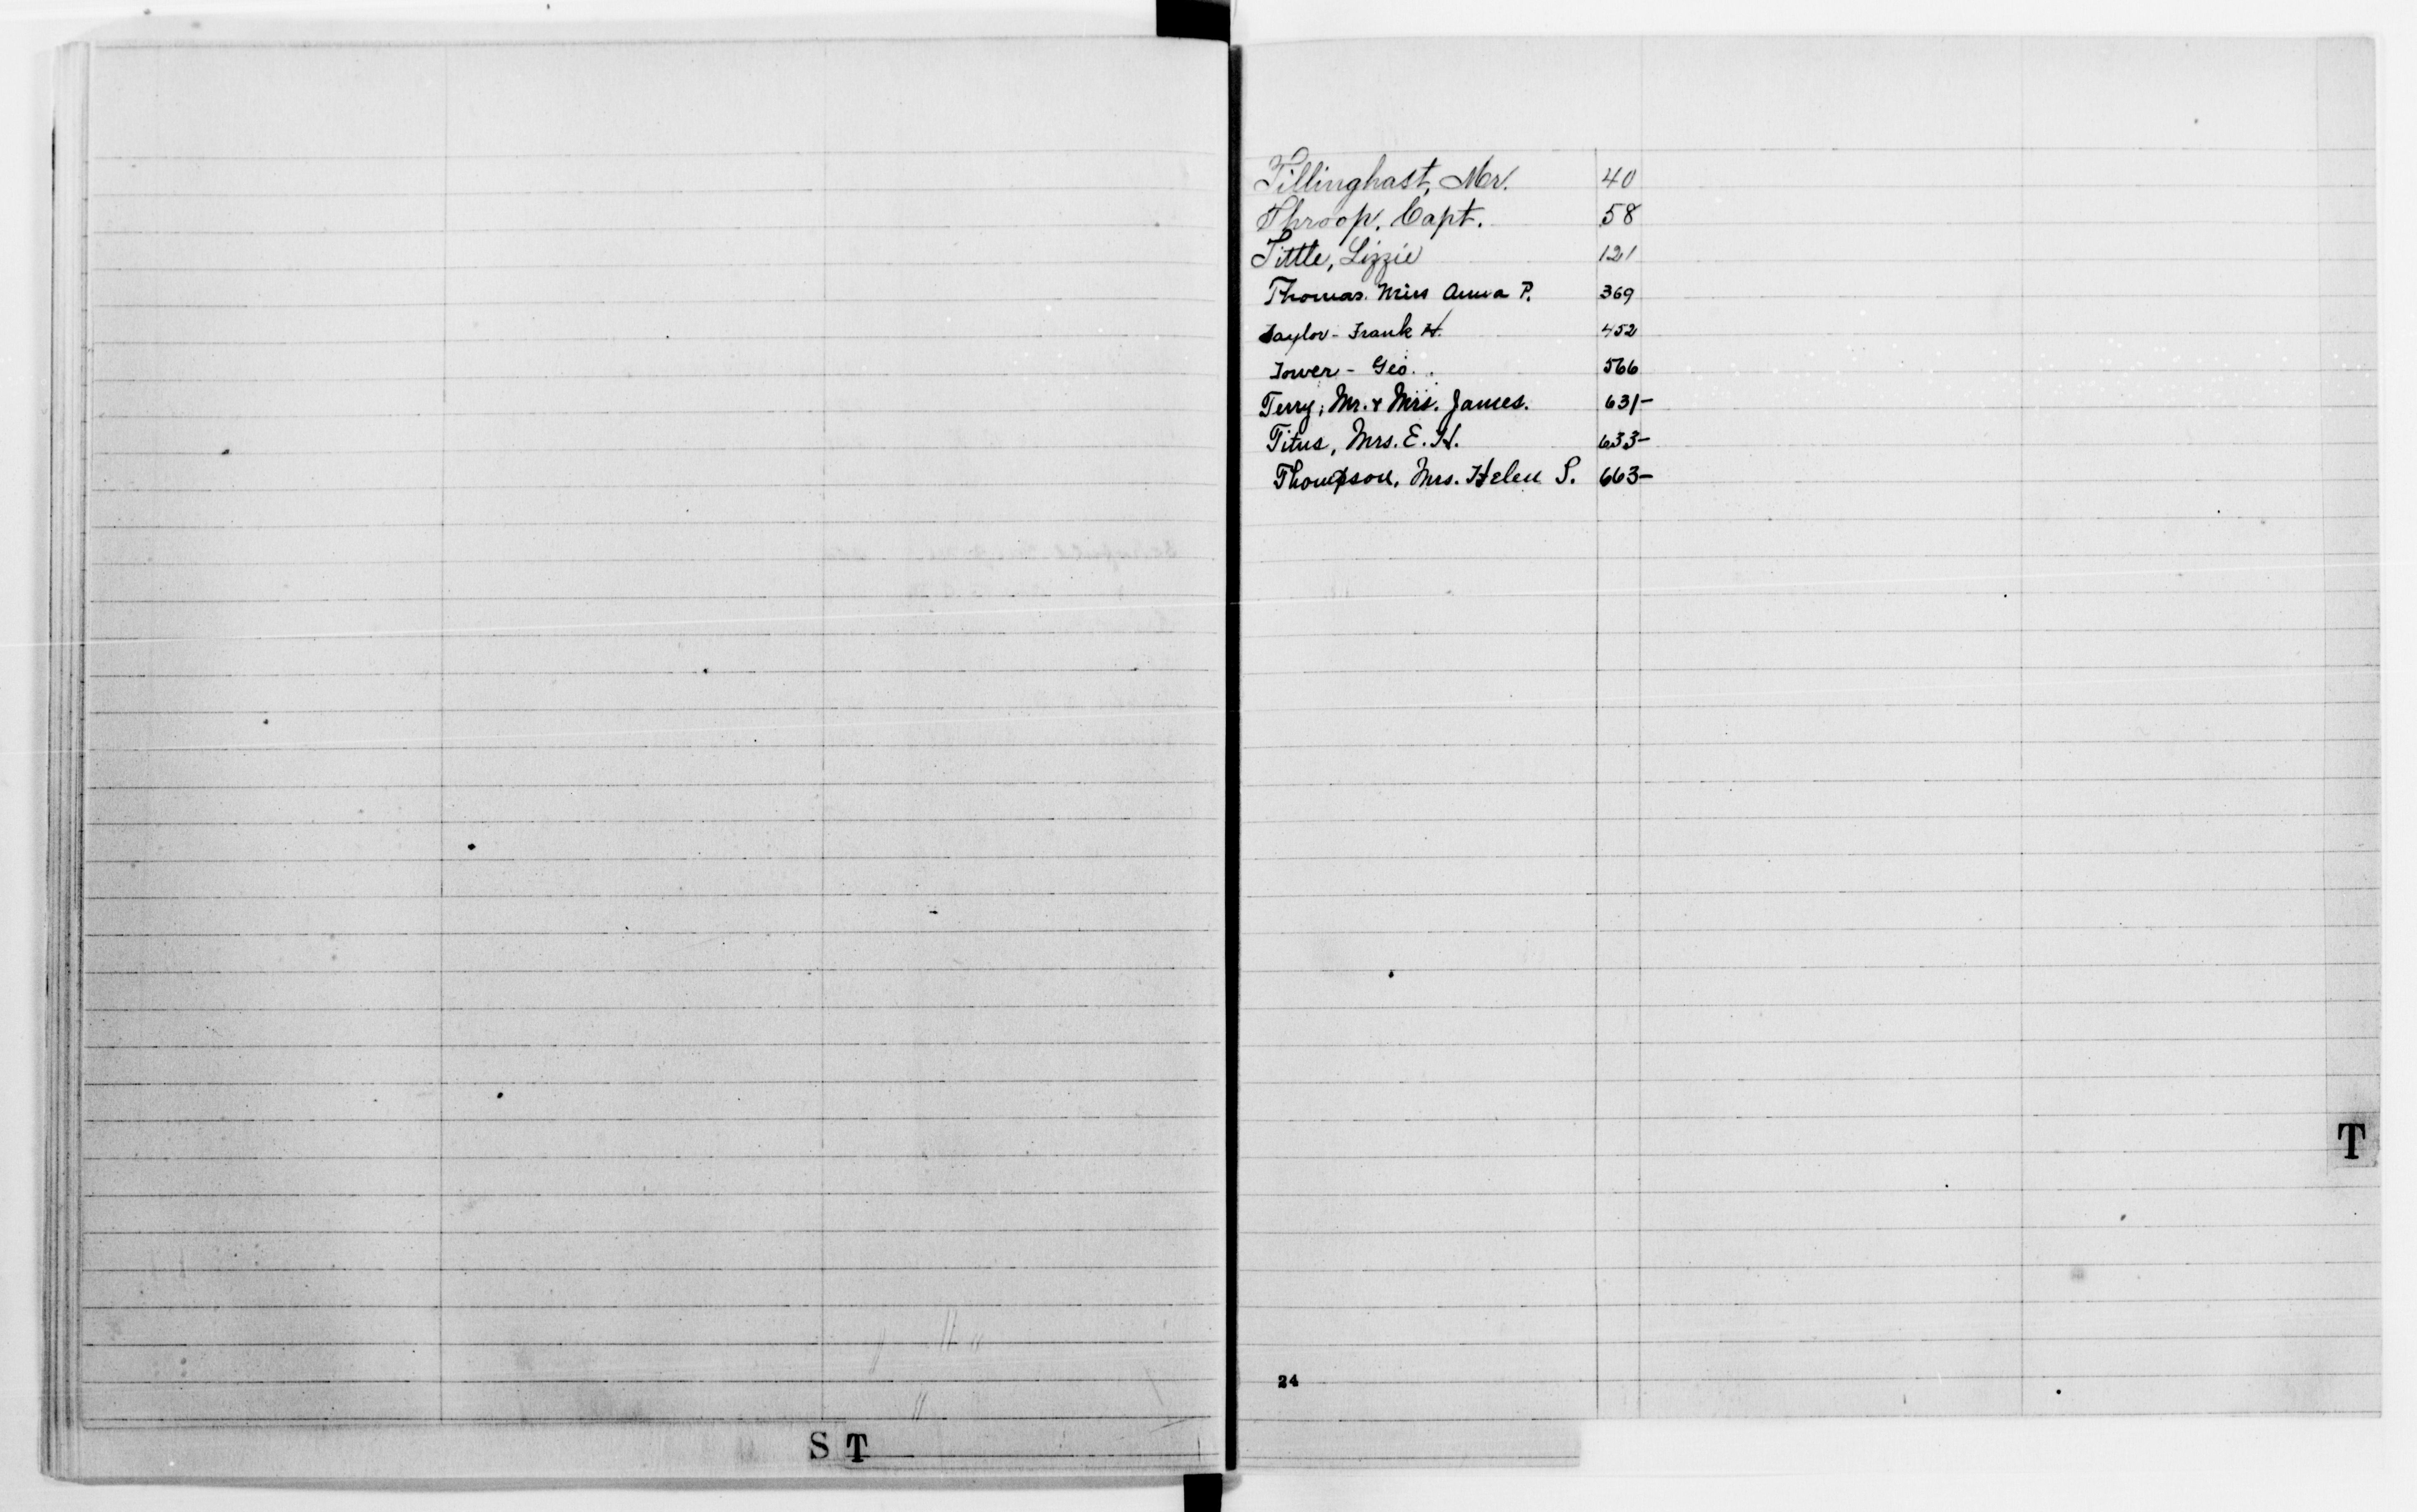 Tillinghast, Mr. 40
Throop, Capt. 58
Tittle, Lizzie 121
Thomas. Miss Anna P. 369
Taylor - Frank H. 452
Tower - Geo. 566
Terry, Mr. & Mrs. James. 631-
Titus, Mrs. E. H. 633-
Thompson, Mrs. Helen S. 663-
T
24
S T